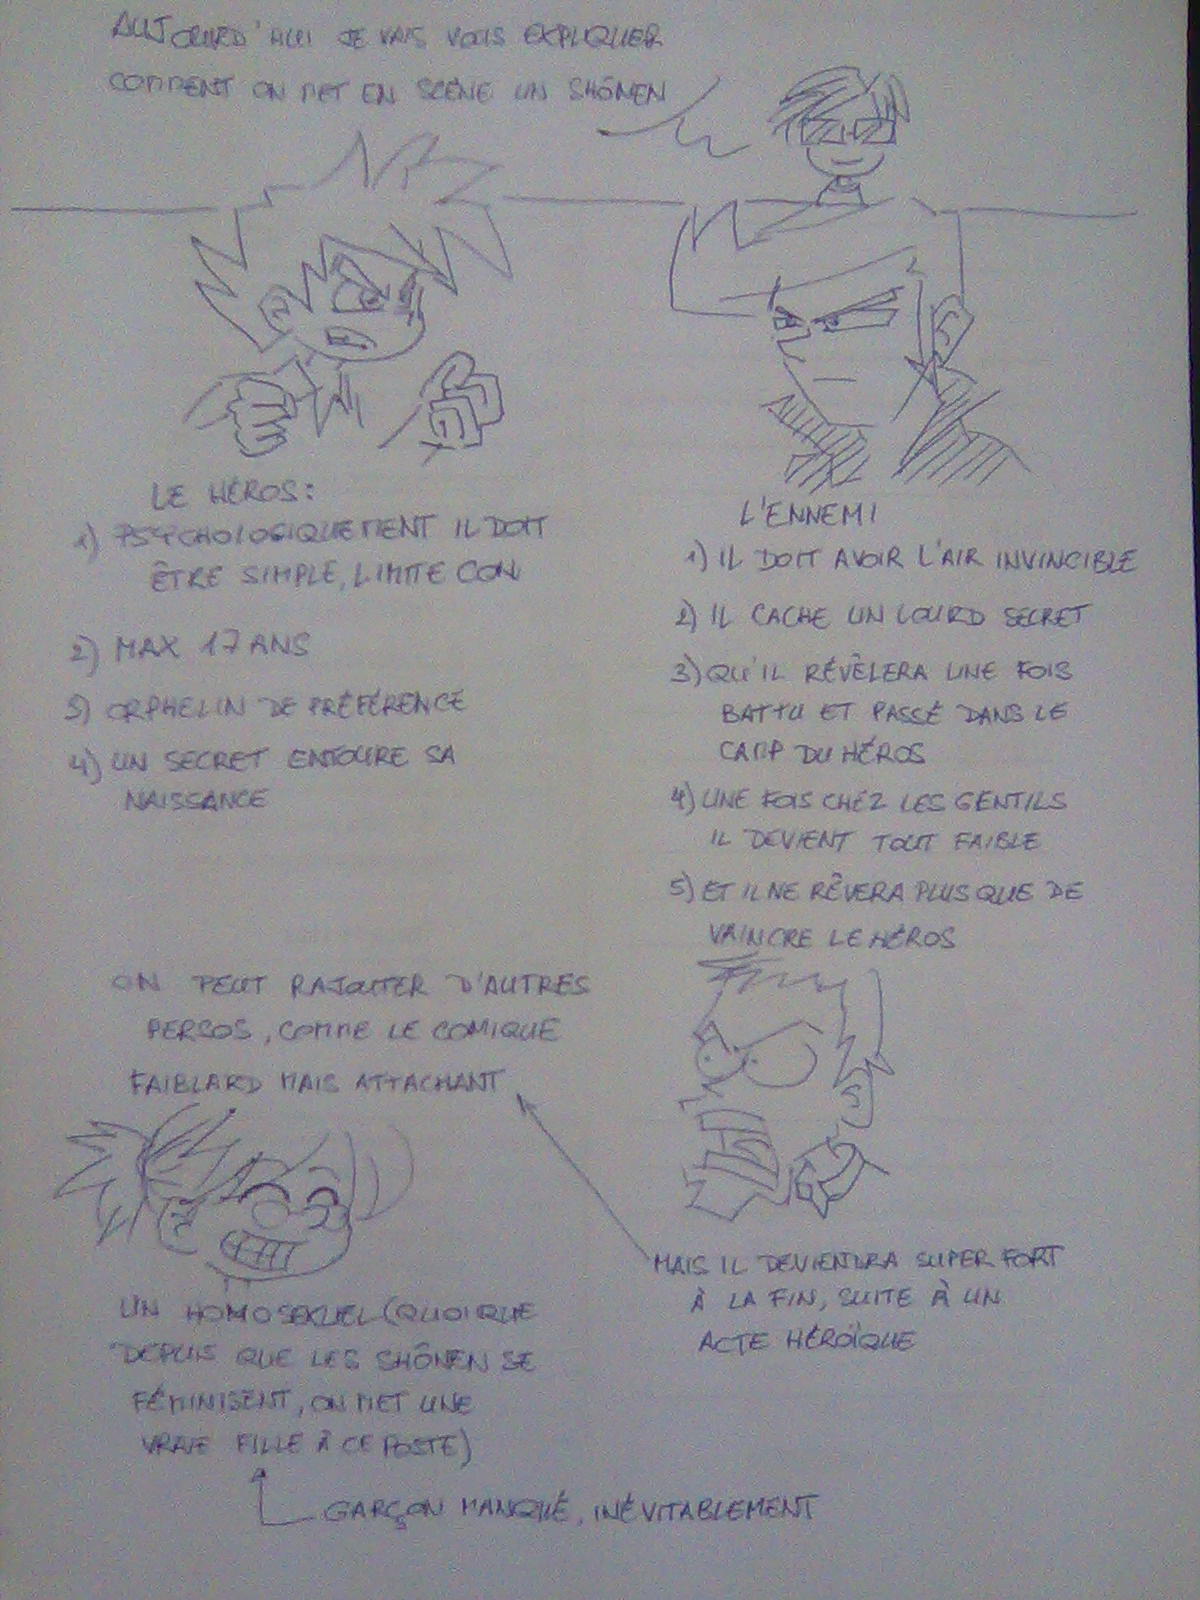 AUJOURD'HUI JE VAIS VOUS EXPLIQUER
COMMENT ON MET EN SCÈNE UN SHÔNEN
LE HÉROS:
1) PSYCHOLOGIQUEMENT IL DOIT
ÊTRE SIMPLE, LIMITE CON
2) MAX 17 ANS
3) ORPHELIN DE PRÉFÉRENCE
4) UN SECRET ENTOURE SA
NAISSANCE
L'ENNEMI
1) IL DOIT AVOIR L'AIR INVINCIBLE
2) IL CACHE UN LOURD SECRET
3) QU'IL RÉVÈLERA UNE FOIS
BATTU ET PASSÉ DANS LE
CAMP DU HÉROS
4) UNE FOIS CHEZ LES GENTILS
IL DEVIENT TOUT FAIBLE
5) ET IL NE RÊVERA PLUS QUE DE
VAINCRE LE HÉROS
ON PEUT RAJOUTER D'AUTRES
PERSOS, COMME LE COMIQUE
FAIBLARD MAIS ATTACHANT
MAIS IL DEVIENDRA SUPER FORT
À LA FIN, SUITE À UN
ACTE HÉROÏQUE
UN HOMOSEXUEL (QUOIQUE
DEPUIS QUE LES SHÔNEN SE
FÉMINISENT, ON MET UNE
VRAIE FILLE À CE POSTE)
GARÇON MANQUÉ, INÉVITABLEMENT